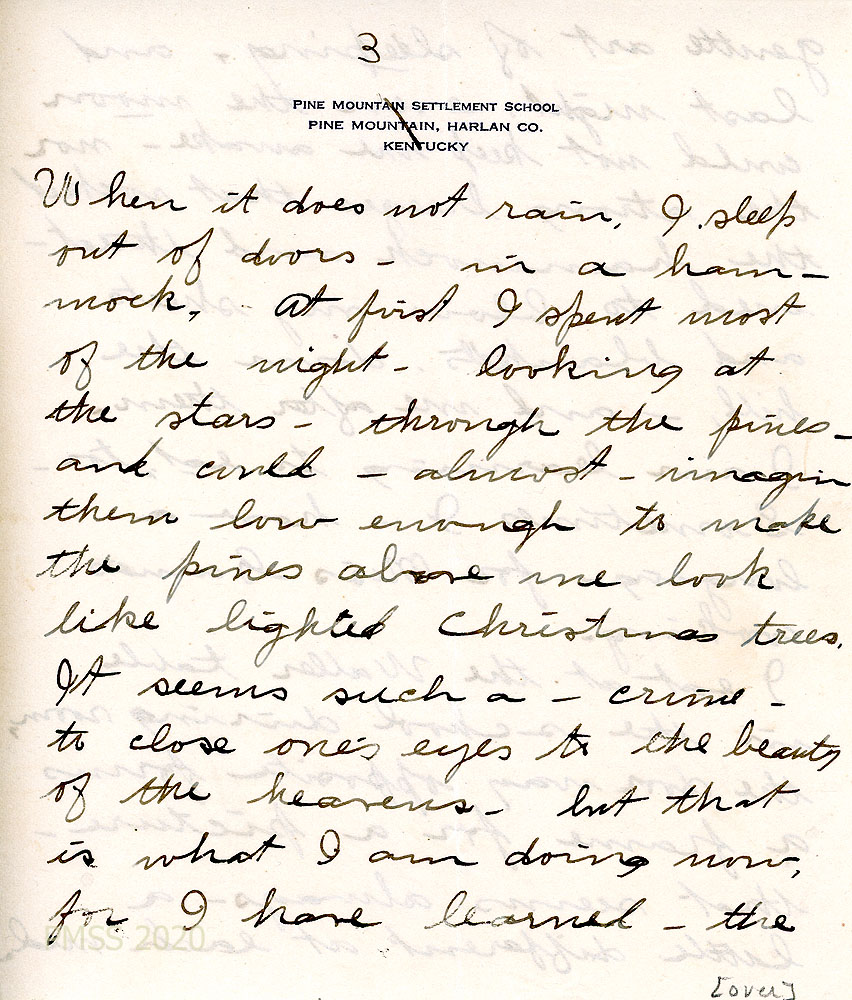 3
PINE MOUNTAIN SETTLEMENT SCHOOL
PINE MOUNTAIN, HARLAN CO.
KENTUCKY
When it does not rain, I sleep
out of doors - in a ham-
mock. At first I spent most
of the night - looking at
the stars - through the pines -
and could - almost - imagin
them low enough to make
the pines above me look
like lighted Christmas trees.
It seems such a - crime -
to close one's eyes to the beauty
of the heavens - but that
is what I am doing now,
for I have learned - the
PMSS 2020
[over]